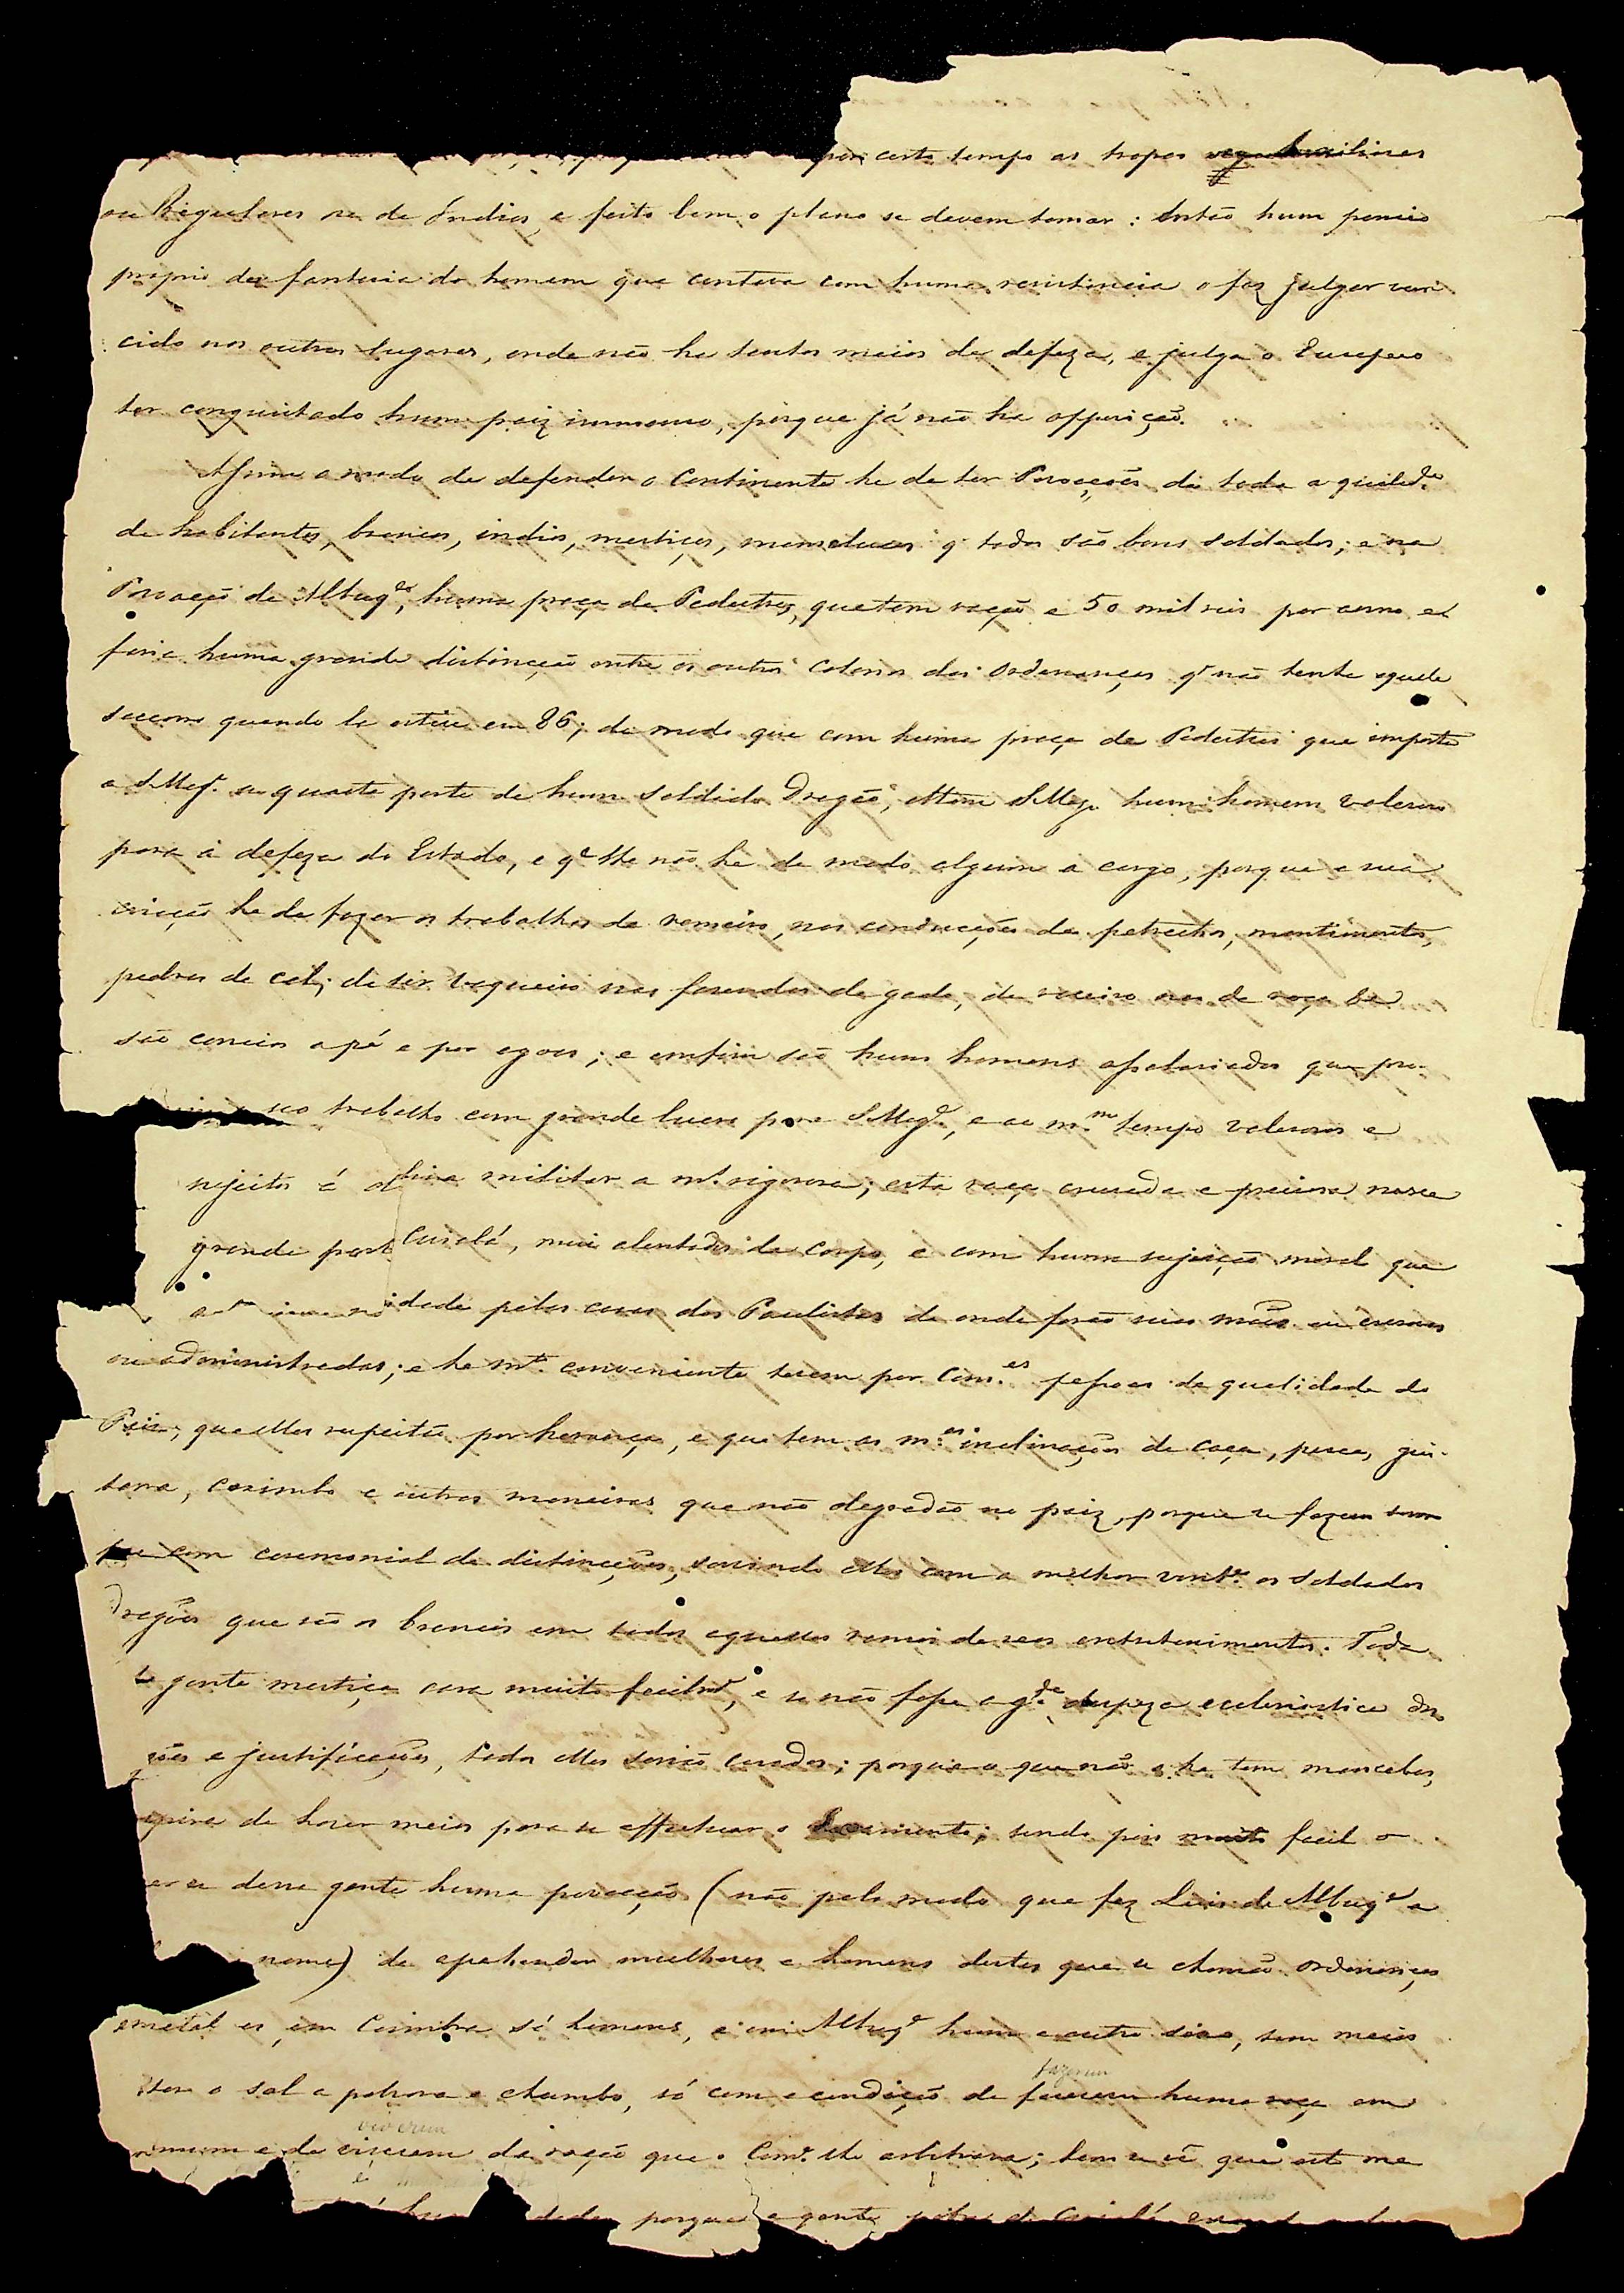 por certo tempo as tropas auxiliares
ou Regulares ou de Indios, e feito bem o plano se devem tomar: Então hum panico
proprio da fantasia do homem que contava com huma resistencia o faz julgar ven-
cido nos outros lugares, onde não ha tantos meios de defeza, e julga o Europeo
ter conquistado hum paiz immenso, porque já não ha opposição.
Assim o modo de defender o Continente he de ter Povoações de toda a qualid.e
de habitantes, brancos, indios, mestiços, mamelucos q. todos são bons soldados; e na
Povoação de Albuq.e, huma praça de Pedestres, que tem ração e 50 mil reis por anno
fazia huma grande distincção entre os outros colonos das Ordenanças q. não tenha aquele
soccorro quando la estive em 86; de modo que com huma praça de Pedestres que importa
a S. Mag.e a quarta parte de hum soldado Dragão, S. Mag.e hum homem valeroso
para a defeza do Estado, e q. lhe não he de modo algum a cargo, porque a sua
criação he de fazer os trabalhos de remeiro, nas conducções de petrechos, mantimentos,
pedras de cal; de ser vaqueiro nas fasendas de gado, de roceiro nas de roça &
são correios a pé e por agoas; e emfim são huns homens assalariados que
seo trabalho com grande lucro para S. Mag.e, e ao m.mo tempo valerosos e
sujeitos á militar a m.to rigorosa; esta raça cruzada e preciosa nasce
grande part Cuiabá, mui alentados de corpo, e com huma sujeição moral que
idade pelas casas dos Paulistas de onde forão suas mães ou escravas
ou administradas; e he m.to conveniente terem por Com.es pessoas de qualidade do
Paiz, que elles respeitão por herança, e que tem as m.as inclinações de caça, pesca, gui-
tarra, carimbo e outras maneiras que não degradão no paiz, porque se fazem sem
pre com ceremonial de distincções, servindo elles com a melhor vont.e os soldados
Dragões que são os brancos em todos aquelles ramos de seos entretenimentos. Toda
gente mestiça casa muito facilm.te, e se não fosse a g.de despeza ecclesiastica
ões e justificações, todos elles serião casados; porque o que não o he tem mancebas,
de haver meios para se effectuar o casamento; sendo pois muito facil o
dessa gente huma povoação (não pelo modo que fez Luis de Albuq.e a
nome) de aprehender mulheres e homens destes que se chamão ordenanças
em Coimbra só homens, e em Albuq.e hum e outro sexo, sem mais
o sal a polvora e chumbo, só com a condição de fazerem huma roça em
fazerem
mum e de viverem da ração que o Com.e lhe arbitrara; bem se vê que este me
viverem
porque a gente pobre de Cuiabá